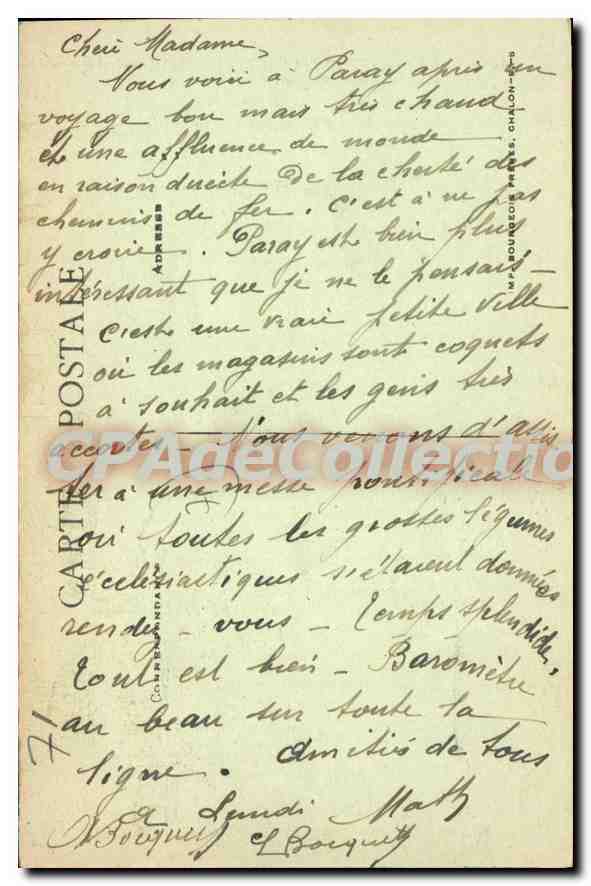 Chère Madame,
Nous voici à Paray après un
voyage bon mais très chaud
et une affluence de monde
en raison directe de la cherté des
chemins de fer. C'est à ne pas
y croire. Paray est bien plus
intéressant que je ne le pensais -
C'est une vraie petite ville
où les magasins sont coquets
à souhait et les gens très
accortes - Nous venons d'assis
ter à une messe pontificale
où toutes les grosses légumes
écclésiastiques s'étaient données
rendez-vous - Temps splendide,
tout est bien - Baromètre
au beau sur toute la
ligne. Amitiés de tous
à Lundi Math
Bocquet Bocquet
71
CARTE POSTALE
CORRESPONDANCE
ADRESSE
IMP. BOURGEOIS FRÈRES, CHALON-S-/S
CPAdeCollection